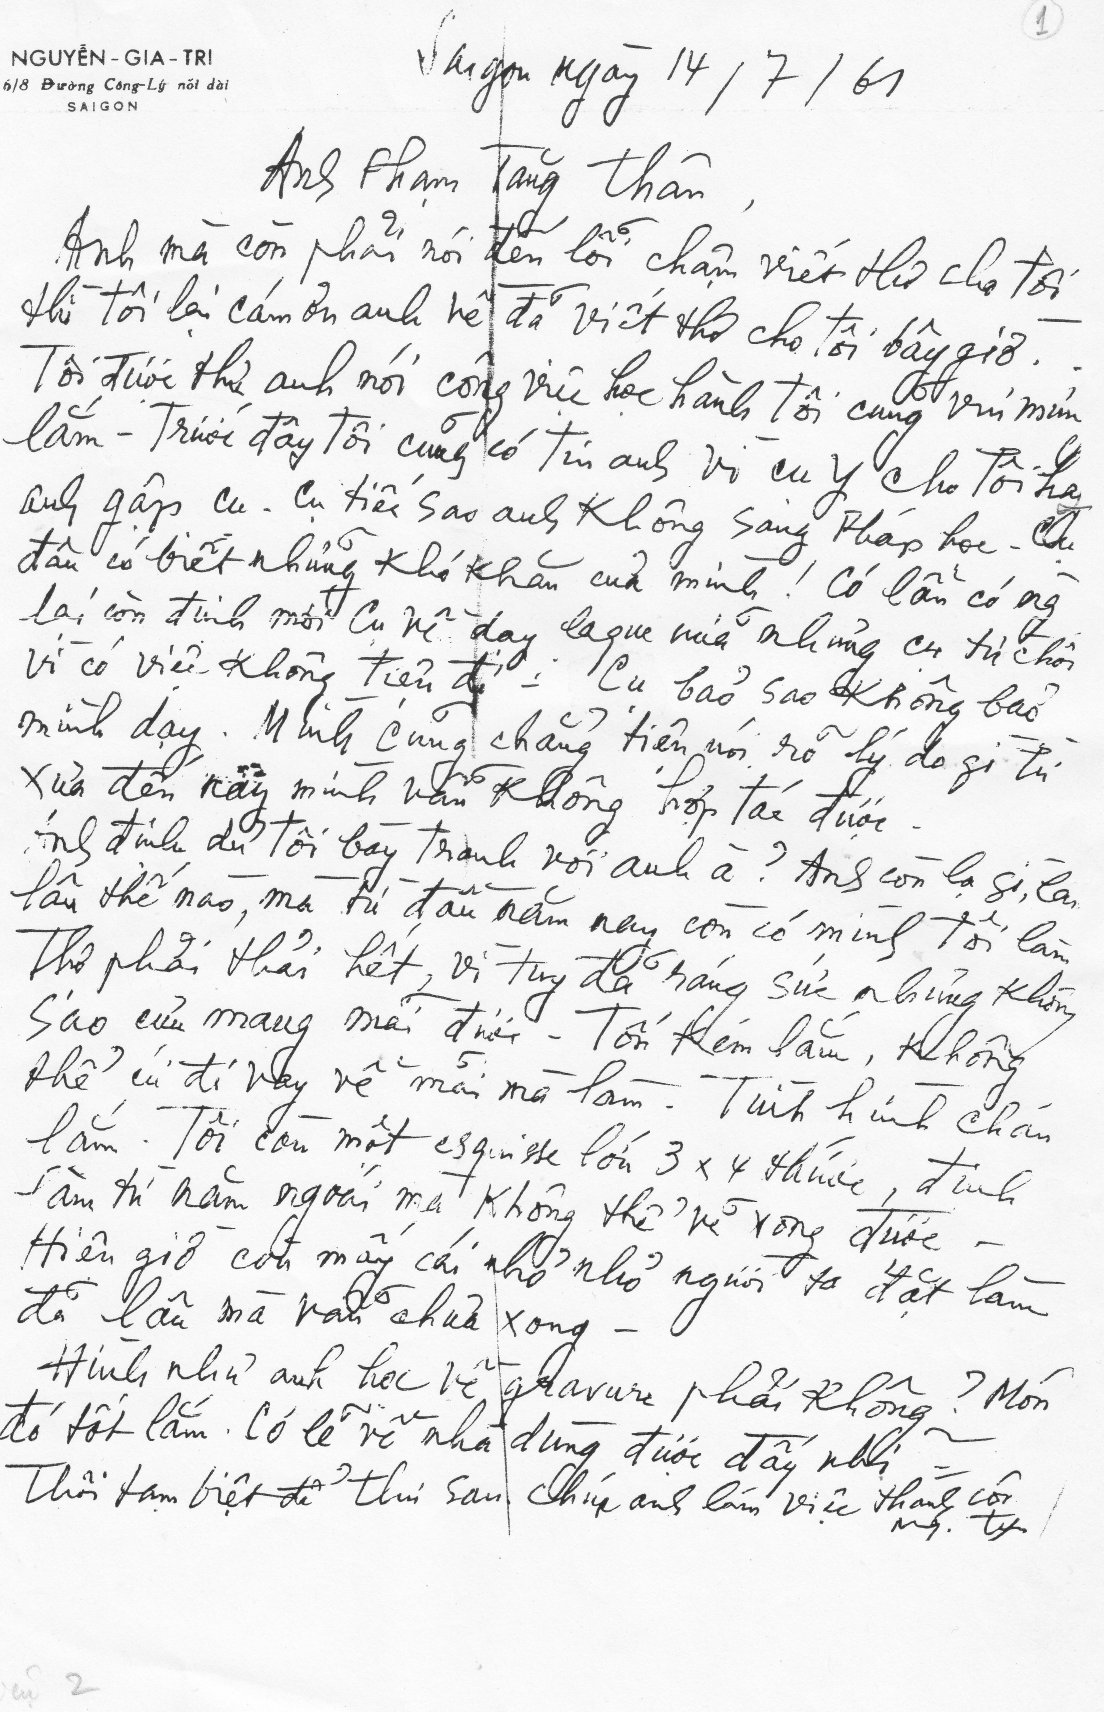 1
NGUYỄN-GIA-TRI
6/8 Đường Công-Lý nối dài
SAIGON
Saigon ngày 14/7/61
Anh Phạm Tăng thân,
Anh mà còn phải nói đến lỗi chậm viết thư cho tôi
thì tôi lại cám ơn anh về đã viết thơ cho tôi bây giờ.
Tôi được thư anh nói công việc học hành tôi cũng vui mừng
lắm - Trước đây tôi cũng có tin anh vì cụ Ý cho tôi hay
anh gặp cụ. Cụ tiếc sao anh không sang Pháp học - Cụ
đâu có biết những khó khăn của mình! Có lần có ng
lại còn định mời Cụ về dạy laque nữa nhưng cụ từ chối
vì có việc không tiện đi - Cụ bảo sao không bảo
mình dạy. Mình cũng chẳng tiện nói rõ lý do gì từ
xưa đến nay mình vẫn không hợp tác được -
Anh định dư tôi bày tranh với anh à? Anh còn lạ gì, làm
lâu thế nào, mà từ đầu năm nay còn có mình tôi làm
Thợ phải thải hết, vì tuy đã ráng sức nhưng không
sao cưu mang mãi được - Tốn kém lắm, không
thể cứ đi vay về mãi mà làm - Tình hình chán
lắm. Tôi còn một esquisse lớn 3 x 4 thước, định
làm từ năm ngoái mà không thể vẽ xong được -
Hiện giờ còn mấy cái nho nhỏ người ta đặt làm
đã lâu mà vẫn chưa xong -
Hình như anh học về gravure phải không? Món
đó tốt lắm. Có lẽ về nhà dùng được đấy nhỉ -
Thôi tạm biệt để thư sau. Chúc anh làm việc thành công
Ng. Tri
2